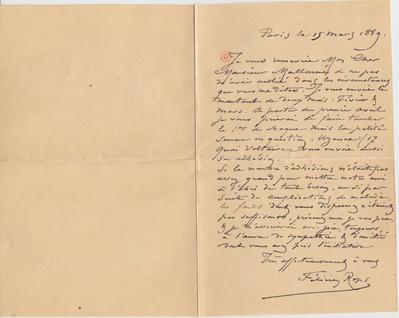 Paris le 15 mars 1889.
Je vous remercie Mon Cher
Monsieur Mallarmé de ne pas
m'avoir oublié dans les circonstances
que vous me dites. Je vous envoie le
montant de deux mois : Février &
Mars. A partir du premier avril
je vous prierai de faire toucher
le 1er de chaque mois la petite
somme en question. Uzanne, 17
Quai Voltaire vous envoie aussi
son adhésion.
Si le nombre d'adhésions n'était pas
assez grand pour mettre notre ami
à l'abri de tout besoin, ou si par
suite de complications de maladie
les fonds dont vous disposez n'étaient
pas suffisants, prévenez moi je vous prie
& je m'associerai avec joie toujours
à l'œuvre de sympathie & d'amitié
dont vous avez pris l'initiative.
Très affectueusement à vous
Félicien Rops